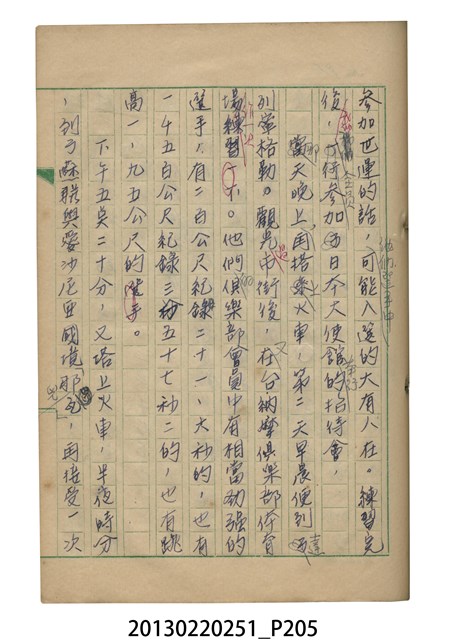 參加世運的話，可能入選的大有人在。練習完
後，全員參加了日本大使館的招待會，
當天晚上，再搭乘火車，第二天早晨便到達
列寧格勒。觀光市街後，又在台納摩俱樂部體育
場練習。他們俱樂部會員中有相當勁強的
選手，有二百公尺紀錄二十一、六秒的，也有
一千五百公尺紀錄三分五十七秒二的，也有跳
高一、九五公尺的選手。
下午五點二十分，又搭上火車，半夜時分
，到了蘇聯與愛沙尼亞國境，再接受一次
20130220251_P205